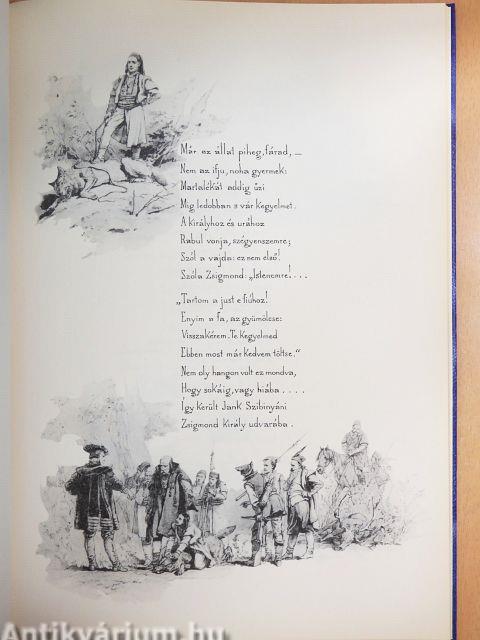 Már ez állat piheg, fárad, —
Nem az ifju, noha gyermek:
Martalékát addig űzi
Míg ledobban s vár kegyelmet.
A királyhoz és urához
Rabul vonja, szégyenszemre;
Szól a vajda: ez nem első!
Szóla Zsigmond: „Istenemre!...
„Tartom a just e fiúhoz!
Enyim a fa, az gyümölcse:
Visszakérem. Te Kegyelmed
Ebben most már kedvem töltse.“
Nem oly hangon volt ez mondva,
Hogy sokáig, vagy hiába....
Így került Jank Szibinyáni
Zsigmond király udvarába.
Antikvárium.hu